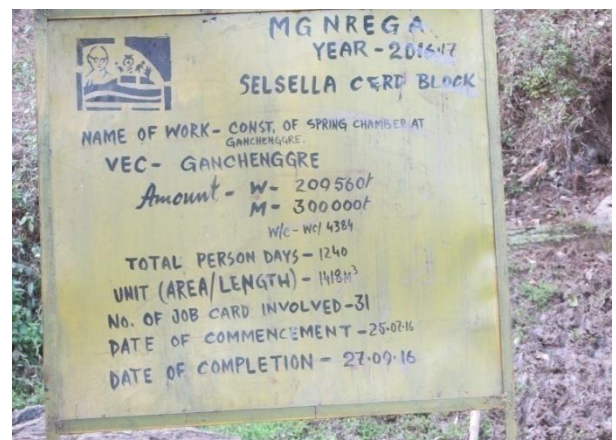 MGNREGA
YEAR - 2016-17
SELSELLA C&RD BLOCK
NAME OF WORK - CONST. OF SPRING CHAMBER AT
GANCHENGGRE.
VEC - GANCHENGGRE
Amount - W - 209560/
M - 300000/
W/C - WC/4384
TOTAL PERSON DAYS - 1240
UNIT (AREA/LENGTH) - 1418M³
NO. OF JOB CARD INVOLVED - 31
DATE OF COMMENCEMENT - 25.07.16
DATE OF COMPLETION - 27.09.16